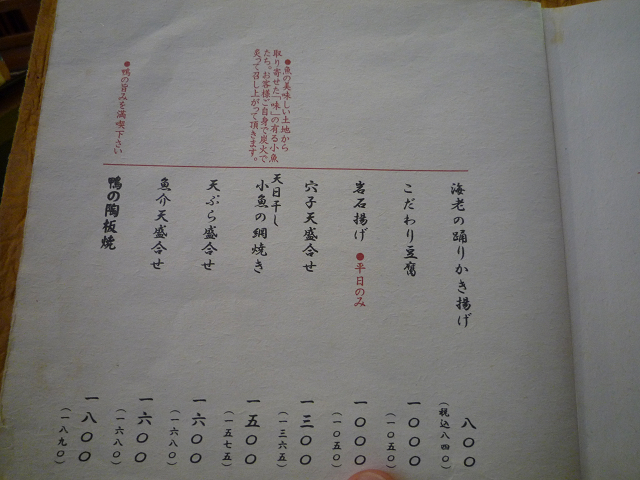 海老の踊りかき揚げ
八〇〇
(税込八四〇)
こだわり豆腐
一〇〇〇
(一〇五〇)
岩石揚げ
●平日のみ
一〇〇〇
(一〇五〇)
穴子天盛合せ
一三〇〇
(一三六五)
●魚の美味しい土地から
取り寄せた「味」の有る小魚
たち。お客様ご自身で炭火で
炙って召し上がって頂きます。
天日干し
小魚の網焼き
一五〇〇
(一五七五)
天ぷら盛合せ
一六〇〇
(一六八〇)
魚介天盛合せ
一六〇〇
(一六八〇)
●鴨の旨みを満喫下さい
鴨の陶板焼
一八〇〇
(一八九〇)